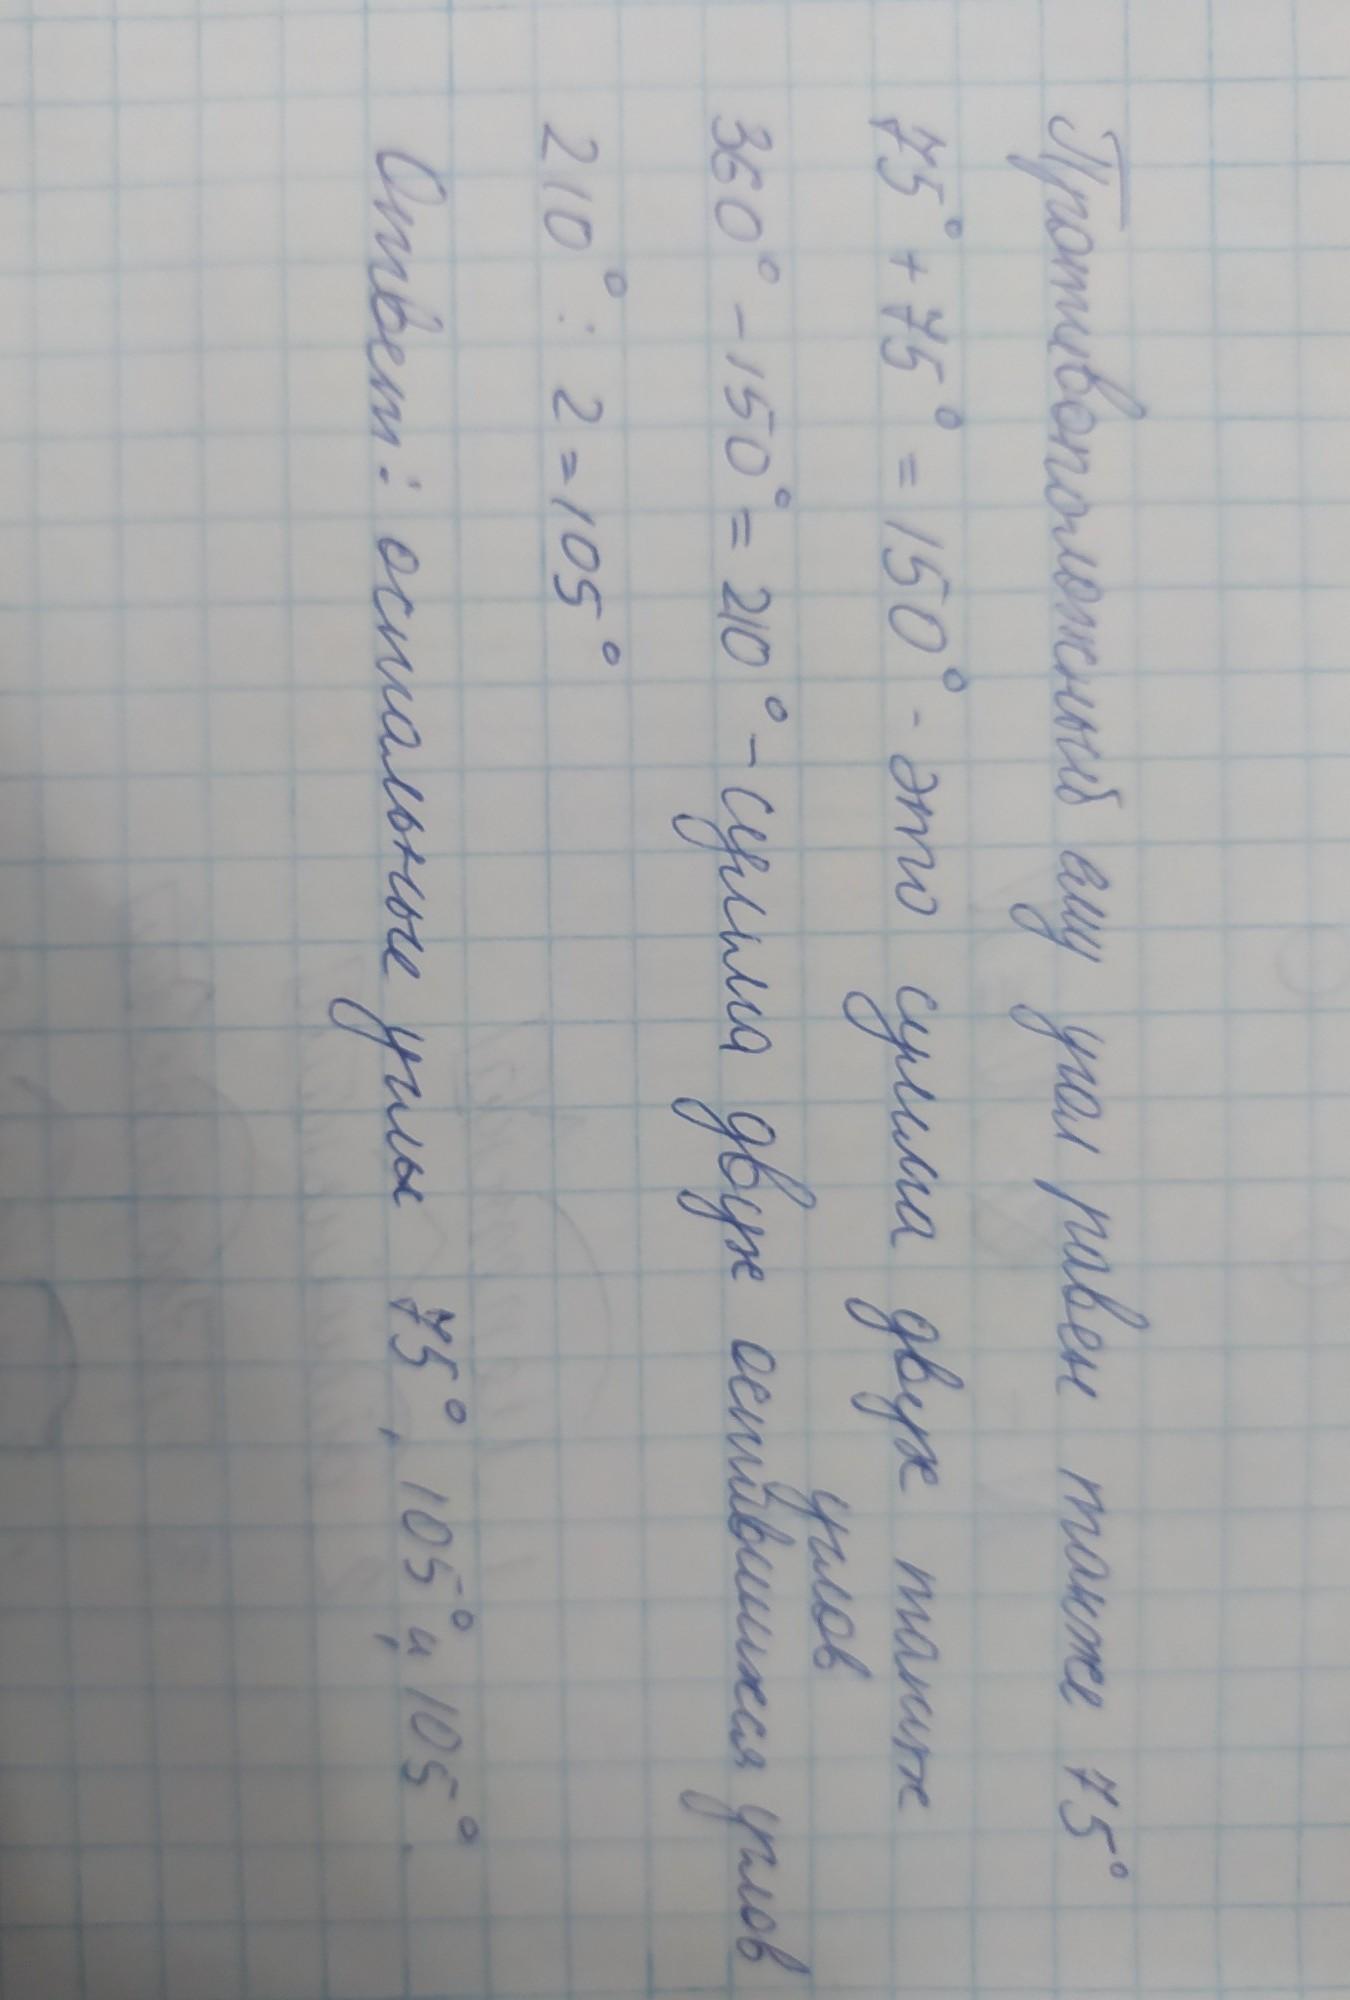 Противоположный ему угол равен также 75°
75° + 75° = 150° - это сумма двух таких
углов
360° - 150° = 210° - сумма двух оставшихся углов
210° : 2 = 105°
Ответ: остальные углы 75°, 105° и 105°.